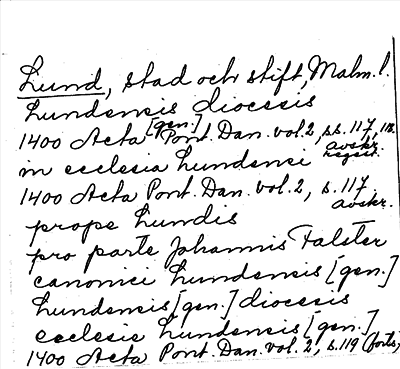 Lund, stad och stift, Malm. l.
Lundensis diocesis
[gen.]
1400 Acta Pont. Dan. vol. 2, s.s. 117, 118.
avskr.
in ecclesia Lundensi regest.
1400 Acta Pont. Dan. vol. 2, s. 117
avskr.
prope Lundis
pro parte Johannis Falster
canonici Lundensis [gen.]
Lundensis [gen.] diocesis
ecclesie Lundensis [gen.]
1400 Acta Pont. Dan. vol. 2, s. 119 (forts.)